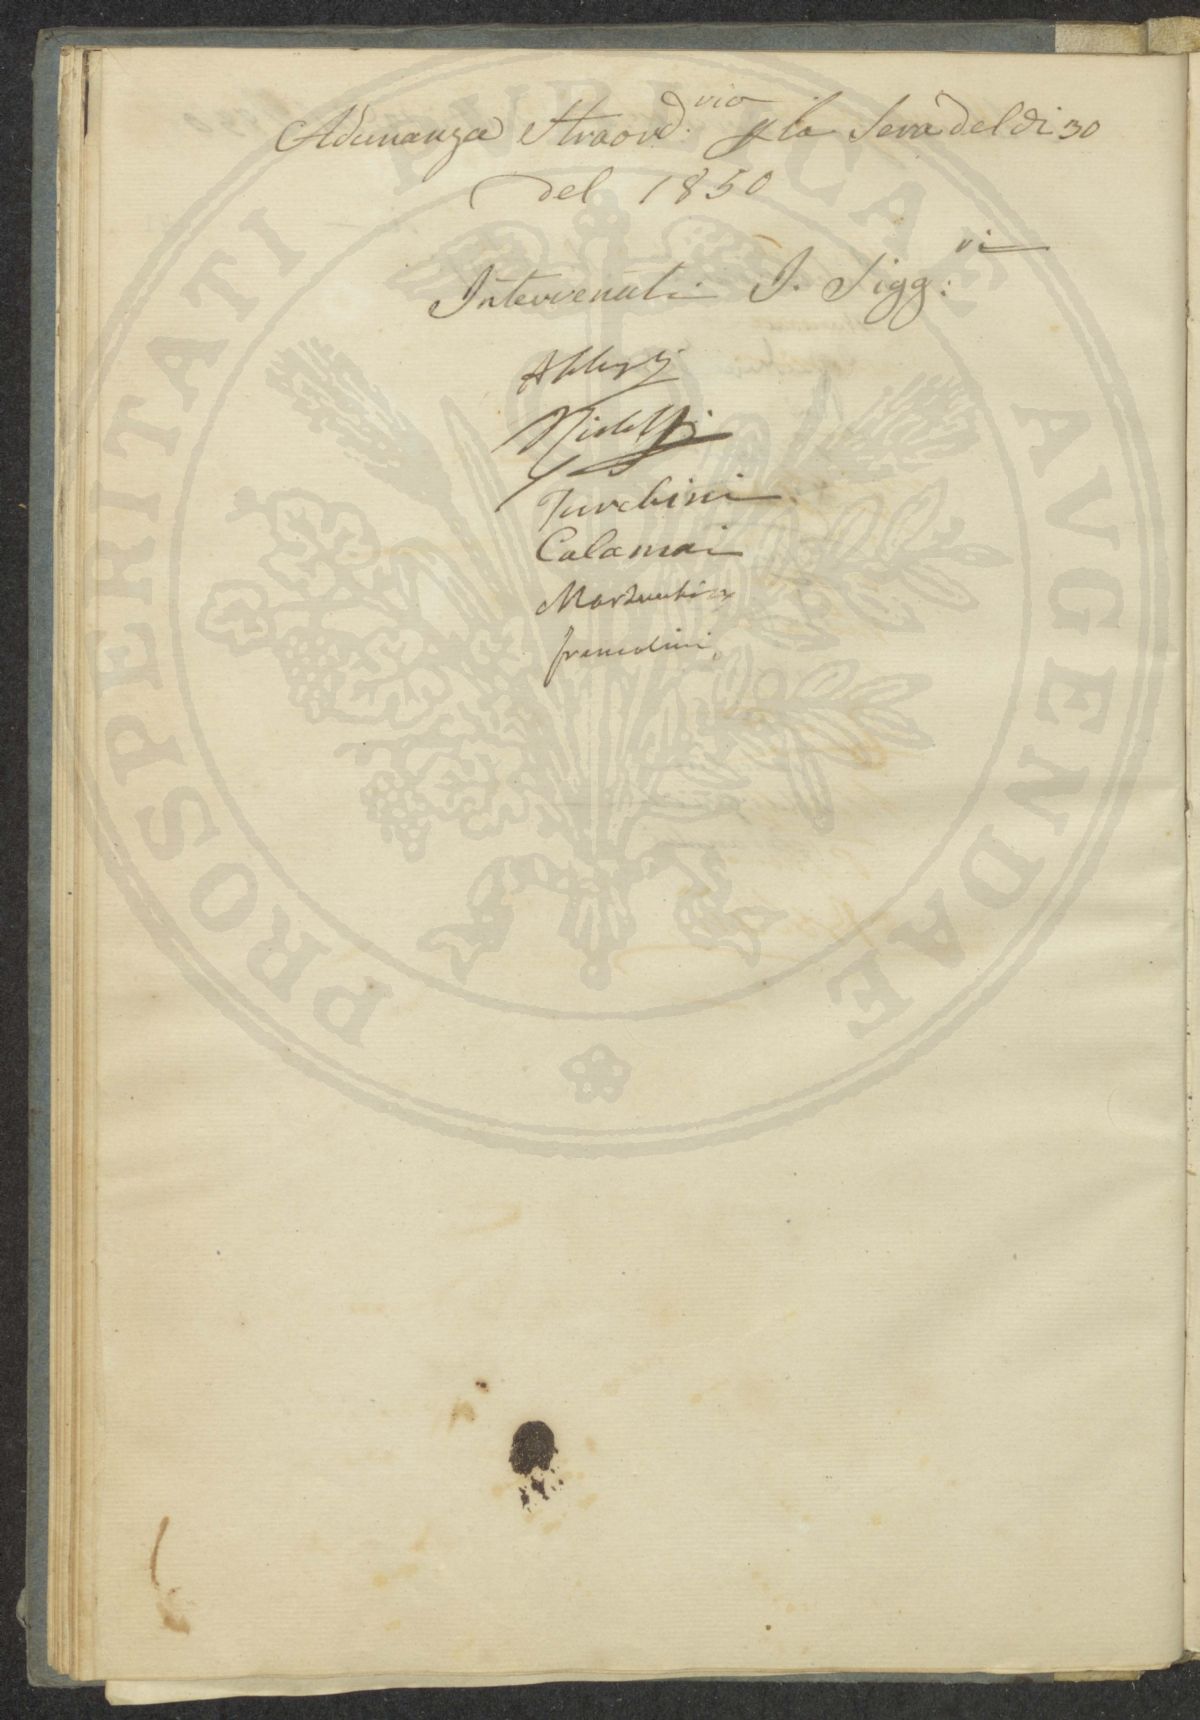 Adunanza Straord.ria p la Sera del di 30
del 1850
Intervenuti I. Sigg:ri
Alberj
Ridolfi
Turchini
Calamai
Marzucchi
francolini
PROSPERITATI PVBLICAE AVGENDAE